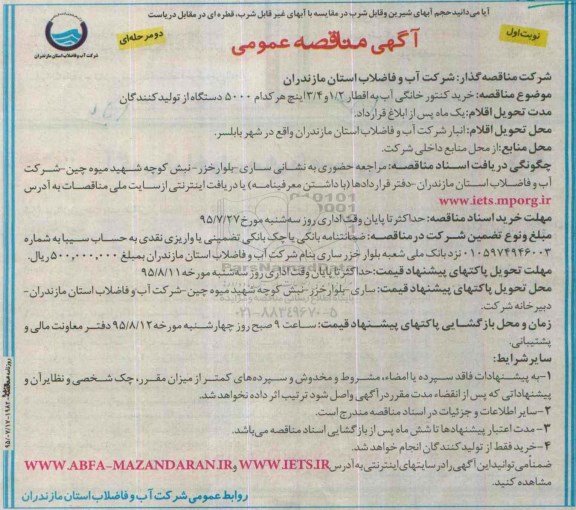 آیا می دانید حجم آبهای شیرین وقابل شرب در مقایسه با آبهای غیر قابل شرب، قطره ای در مقابل دریاست
نوبت اول
آگهی مناقصه عمومی
دو مرحله ای
شرکت آب و فاضلاب استان مازندران
شرکت مناقصه گذار: شرکت آب و فاضلاب استان مازندران
موضوع مناقصه: خرید کنتور خانگی آب به اقطار ۱/۲ و ۳/۴ اینچ هر کدام ۵۰۰۰ دستگاه از تولیدکنندگان
مدت تحویل اقلام: یک ماه پس از ابلاغ قرارداد.
محل تحویل اقلام: انبار شرکت آب و فاضلاب استان مازندران واقع در شهر بابلسر.
محل منابع: از محل منابع داخلی شرکت.
چگونگی دریافت اسناد مناقصه: مراجعه حضوری به نشانی ساری-بلوار خزر- نبش کوچه شهید میوه چین-شرکت
آب و فاضلاب استان مازندران-دفتر قراردادها (با داشتن معرفینامه) یا دریافت اینترنتی از سایت ملی مناقصات به آدرس
www.iets.mporg.ir
مهلت خرید اسناد مناقصه: حداکثر تا پایان وقت اداری روز سه شنبه مورخ ۹۵/۷/۲۷
مبلغ ونوع تضمین شرکت در مناقصه: ضمانتنامه بانکی یا چک بانکی تضمینی یا واریزی نقدی به حساب سیبا به شماره
۰۱۰۵۹۷۴۹۴۶۰۰۳ نزد بانک ملی شعبه بلوار خزر ساری بنام شرکت آب و فاضلاب استان مازندران بمبلغ ۵۰۰,۰۰۰,۰۰۰ ریال.
مهلت تحویل پاکتهای پیشنهاد قیمت: حداکثر تا پایان وقت اداری روز سه شنبه مورخه ۹۵/۸/۱۱
محل تحویل پاکتهای پیشنهاد قیمت: ساری-بلوار خزر-نبش کوچه شهید میوه چین-شرکت آب و فاضلاب استان مازندران-
دبیرخانه شرکت.
۰۲۱-۸۸۳۴۹۶۷۰-۵
زمان و محل بازگشایی پاکتهای پیشنهاد قیمت: ساعت ۹ صبح روز چهارشنبه مورخه ۹۵/۸/۱۲ دفتر معاونت مالی و
پشتیبانی.
سایر شرایط:
۱-به پیشنهادات فاقد سپرده یا امضاء، مشروط و مخدوش و سپرده های کمتر از میزان مقرر، چک شخصی و نظایر آن و
پیشنهاداتی که پس از انقضاء مدت مقرر در آگهی واصل شود ترتیب اثر داده نخواهد شد.
۲-سایر اطلاعات و جزئیات در اسناد مناقصه مندرج است.
۳- مدت اعتبار پیشنهادها تا شش ماه پس از بازگشایی اسناد مناقصه می باشد.
۴-خرید فقط از تولیدکنندگان انجام خواهد شد.
ضمنا می توانید این آگهی را در سایتهای اینترنتی به آدرس WWW.IETS.IR و WWW.ABFA-MAZANDARAN.IR
مشاهده کنید.
روابط عمومی شرکت آب و فاضلاب استان مازندران